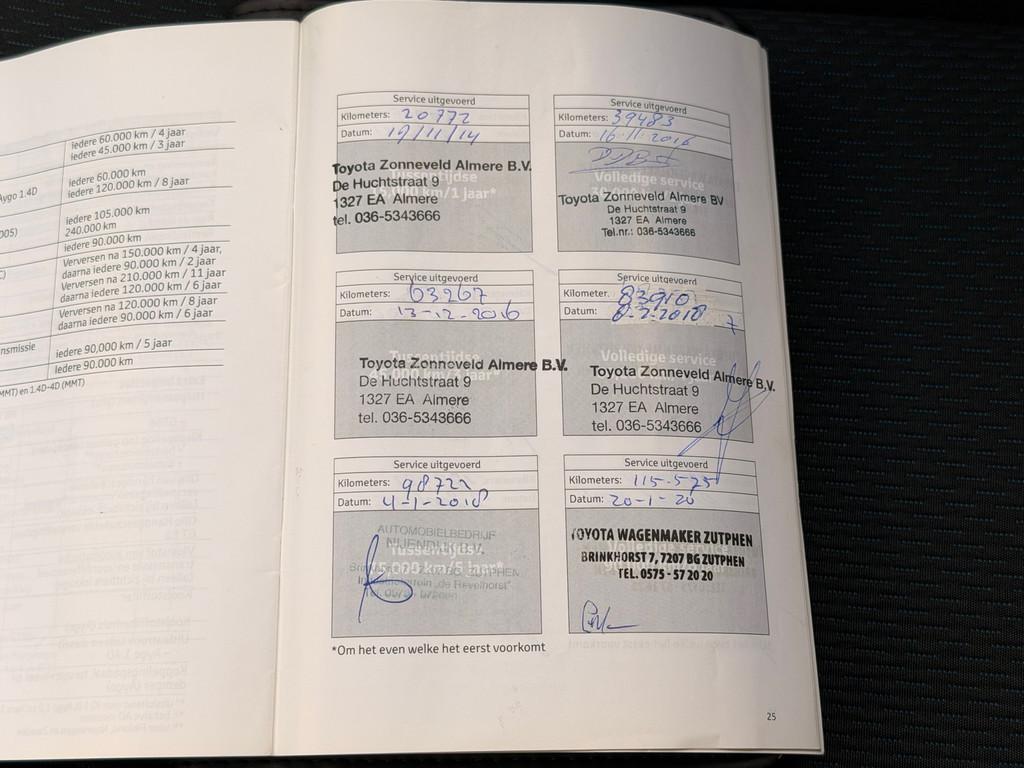 iedere 60.000 km / 4 jaar
iedere 45.000 km / 3 jaar
Aygo 1.4D
iedere 60.000 km
iedere 120.000 km / 8 jaar
005)
iedere 105.000 km
240.000 km
iedere 90.000 km
C)
Verversen na 150.000 km / 4 jaar,
daarna iedere 90.000 km / 2 jaar
Verversen na 210.000 km / 11 jaar
daarna iedere 120.000 km / 6 jaar
Verversen na 120.000 km / 8 jaar
daarna iedere 90.000 km / 6 jaar
nsmissie
iedere 90.000 km / 5 jaar
iedere 90.000 km
MMT) en 1.4D-4D (MMT)
Service uitgevoerd
Kilometers: 20772
Datum: 19/11/14
Tussentijdse
15.000 km/1 jaar*
Toyota Zonneveld Almere B.V.
De Huchtstraat 9
1327 EA Almere
tel. 036-5343666
Service uitgevoerd
Kilometers: 39483
Datum:
Volledige service
Toyota Zonneveld Almere BV
De Huchtstraat 9
1327 EA Almere
Tel.nr.: 036-5343666
Service uitgevoerd
Kilometers: 63267
Datum: 13-12-2016
Tussentijdse
45.000 km/3 jaar*
Toyota Zonneveld Almere B.V.
De Huchtstraat 9
1327 EA Almere
tel. 036-5343666
Service uitgevoerd
Kilometer. 83910
Datum: 8-2-2018
Volledige service
Toyota Zonneveld Almere B.V.
De Huchtstraat 9
1327 EA Almere
tel. 036-5343666
Service uitgevoerd
Kilometers: 98722
Datum: 4-1-2018
AUTOMOBIELBEDRIJF
Tussentijdse
75.000 km/5 jaar*
ZUTPHEN
"de Revelhorst"
Service uitgevoerd
Kilometers: 115.575
Datum: 20-1-20
TOYOTA WAGENMAKER ZUTPHEN
Volledige service
BRINKHORST 7, 7207 BG ZUTPHEN
TEL. 0575 - 57 20 20
*Om het even welke het eerst voorkomt
25